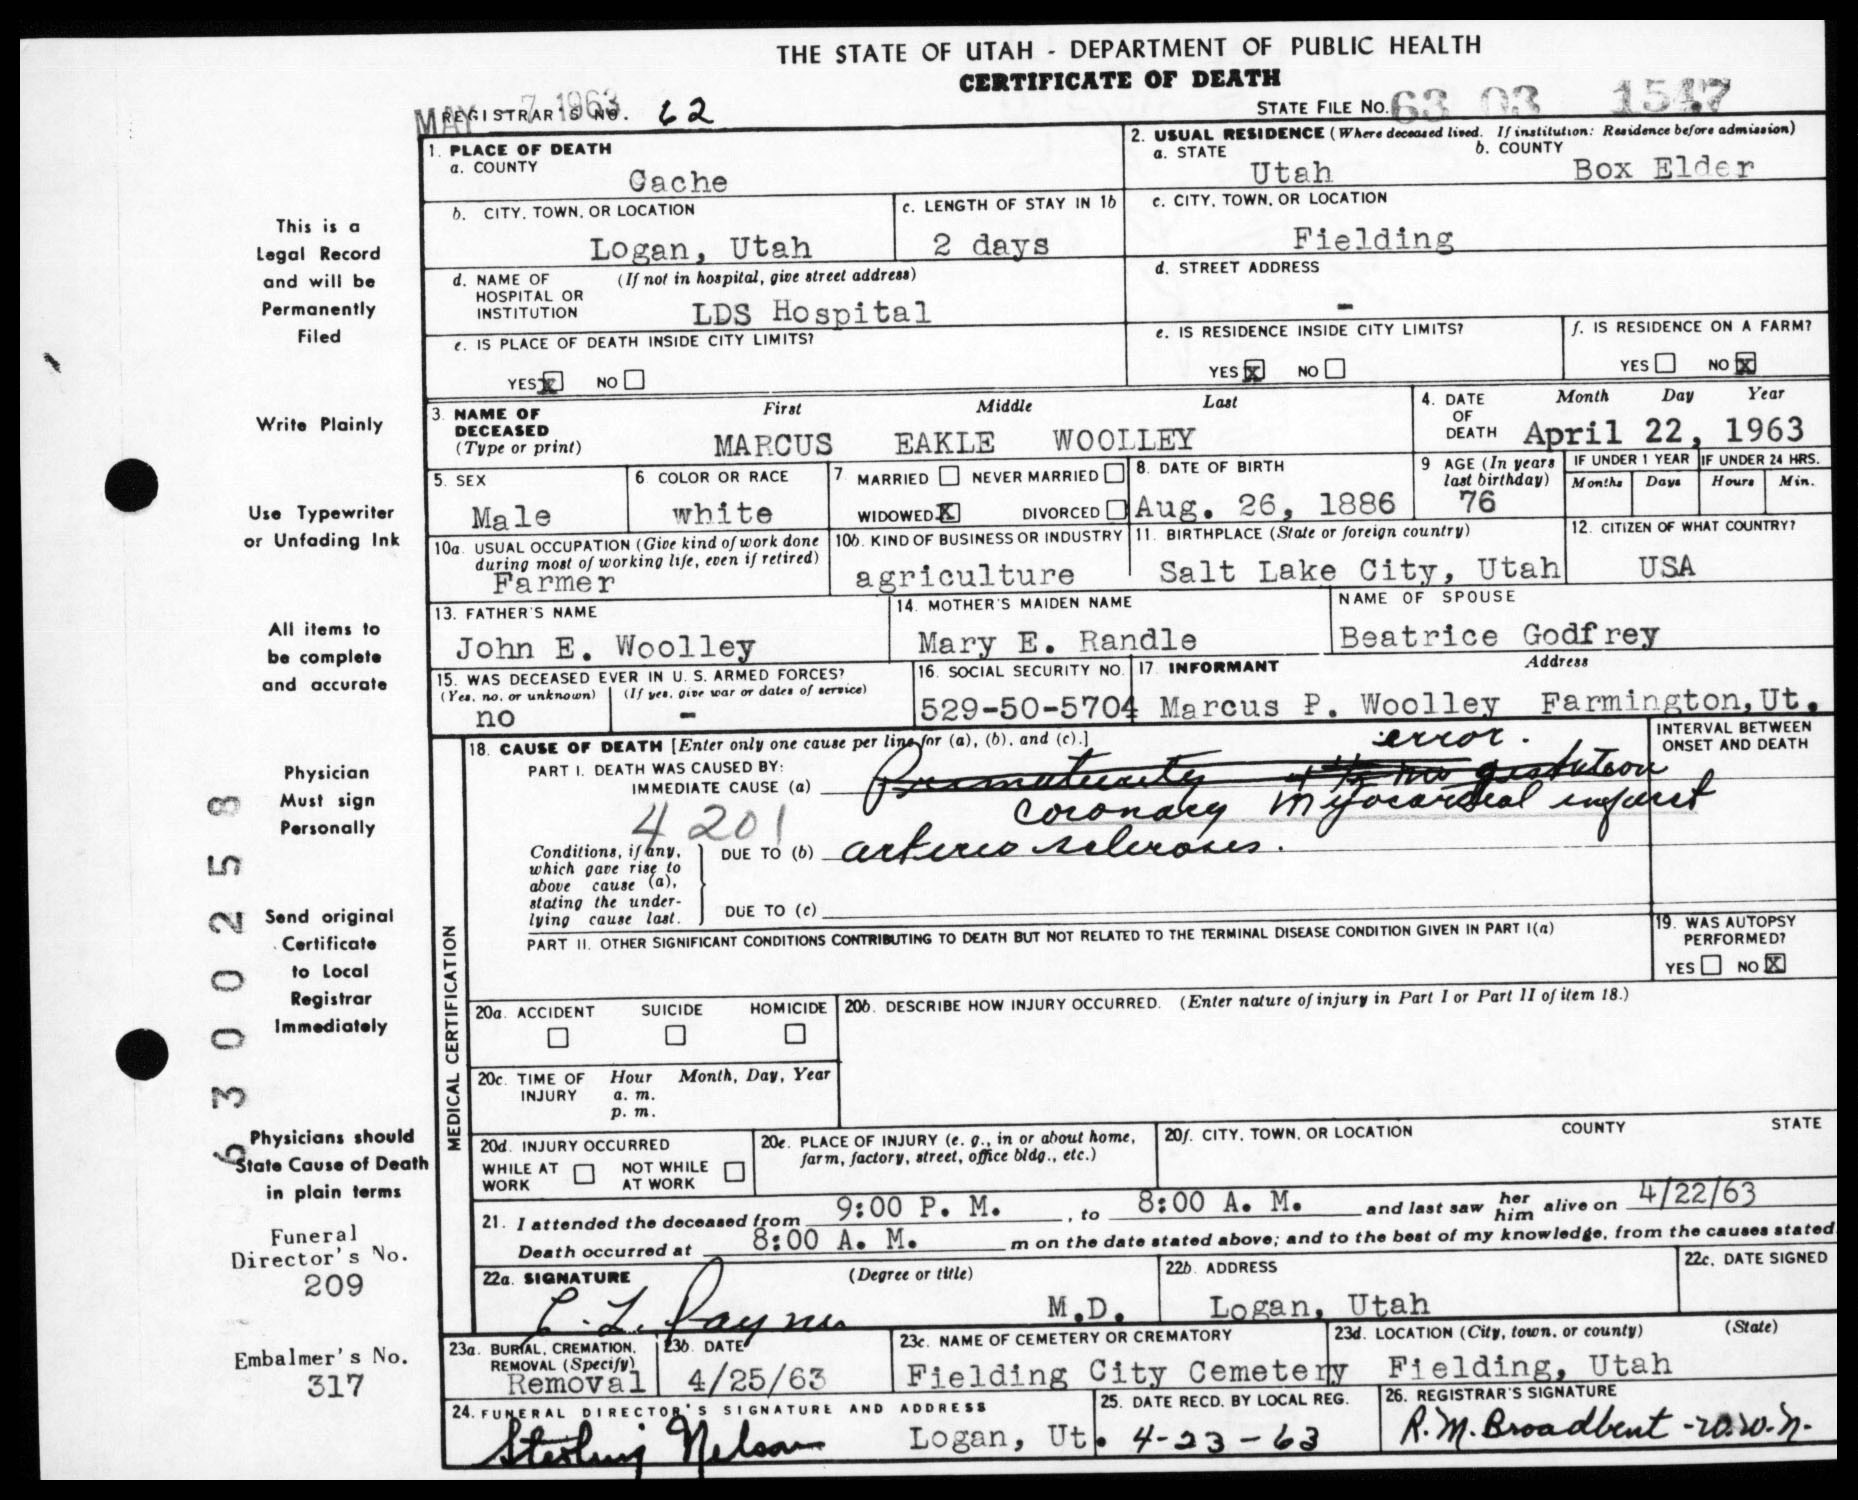 THE STATE OF UTAH - DEPARTMENT OF PUBLIC HEALTH
CERTIFICATE OF DEATH
MAY 7 1963
REGISTRAR'S NO. 62
STATE FILE NO. 63 03 1547
1. PLACE OF DEATH
a. COUNTY
Cache
2. USUAL RESIDENCE (Where deceased lived. If institution: Residence before admission)
a. STATE Utah
b. COUNTY Box Elder
b. CITY, TOWN, OR LOCATION
Logan, Utah
c. LENGTH OF STAY IN 1b
2 days
c. CITY, TOWN, OR LOCATION
Fielding
d. NAME OF HOSPITAL OR INSTITUTION (If not in hospital, give street address)
LDS Hospital
d. STREET ADDRESS
-
e. IS PLACE OF DEATH INSIDE CITY LIMITS?
YES X NO
e. IS RESIDENCE INSIDE CITY LIMITS?
YES X NO
f. IS RESIDENCE ON A FARM?
YES NO X
3. NAME OF DECEASED (Type or print)
First Middle Last
MARCUS EAKLE WOOLLEY
4. DATE OF DEATH Month Day Year
April 22, 1963
5. SEX
Male
6. COLOR OR RACE
white
7. MARRIED NEVER MARRIED
WIDOWED X DIVORCED
8. DATE OF BIRTH
Aug. 26, 1886
9 AGE (In years last birthday)
76
IF UNDER 1 YEAR
Months Days
IF UNDER 24 HRS.
Hours Min.
10a. USUAL OCCUPATION (Give kind of work done during most of working life, even if retired)
Farmer
10b. KIND OF BUSINESS OR INDUSTRY
agriculture
11. BIRTHPLACE (State or foreign country)
Salt Lake City, Utah
12. CITIZEN OF WHAT COUNTRY?
USA
13. FATHER'S NAME
John E. Woolley
14. MOTHER'S MAIDEN NAME
Mary E. Randle
NAME OF SPOUSE
Beatrice Godfrey
15. WAS DECEASED EVER IN U. S. ARMED FORCES?
(Yes, no, or unknown) (If yes, give war or dates of service)
no -
16. SOCIAL SECURITY NO.
529-50-5704
17. INFORMANT Address
Marcus P. Woolley Farmington, Ut.
MEDICAL CERTIFICATION
18. CAUSE OF DEATH [Enter only one cause per line for (a), (b), and (c).]
INTERVAL BETWEEN ONSET AND DEATH
PART I. DEATH WAS CAUSED BY:
error.
IMMEDIATE CAUSE (a) Prematurity 4 1/2 mo gestation
coronary myocardial infarct
4201
Conditions, if any, which gave rise to above cause (a), stating the underlying cause last.
DUE TO (b) arterio sclerosis.
DUE TO (c)
PART II. OTHER SIGNIFICANT CONDITIONS CONTRIBUTING TO DEATH BUT NOT RELATED TO THE TERMINAL DISEASE CONDITION GIVEN IN PART I(a)
19. WAS AUTOPSY PERFORMED?
YES NO X
20a. ACCIDENT SUICIDE HOMICIDE
20b. DESCRIBE HOW INJURY OCCURRED. (Enter nature of injury in Part I or Part II of item 18.)
20c. TIME OF INJURY Hour Month, Day, Year
a. m.
p. m.
20d. INJURY OCCURRED
WHILE AT WORK NOT WHILE AT WORK
20e. PLACE OF INJURY (e. g., in or about home, farm, factory, street, office bldg., etc.)
20f. CITY, TOWN, OR LOCATION COUNTY STATE
21. I attended the deceased from 9:00 P. M., to 8:00 A. M. and last saw her him alive on 4/22/63
Death occurred at 8:00 A. M. m on the date stated above; and to the best of my knowledge, from the causes stated
22a. SIGNATURE (Degree or title)
C. L. Payne M.D.
22b. ADDRESS
Logan, Utah
22c. DATE SIGNED
23a. BURIAL, CREMATION, REMOVAL (Specify)
Removal
23b. DATE
4/25/63
23c. NAME OF CEMETERY OR CREMATORY
Fielding City Cemetery
23d. LOCATION (City, town, or county) (State)
Fielding, Utah
24. FUNERAL DIRECTOR'S SIGNATURE AND ADDRESS
Sterling Nelson Logan, Ut.
25. DATE RECD. BY LOCAL REG.
4-23-63
26. REGISTRAR'S SIGNATURE
R. M. Broadbent -w.w.n.
This is a
Legal Record
and will be
Permanently
Filed
Write Plainly
Use Typewriter
or Unfading Ink
All items to
be complete
and accurate
Physician
Must sign
Personally
Send original
Certificate
to Local
Registrar
Immediately
Physicians should
State Cause of Death
in plain terms
Funeral
Director's No.
209
Embalmer's No.
317
63 0 0 2 5 8